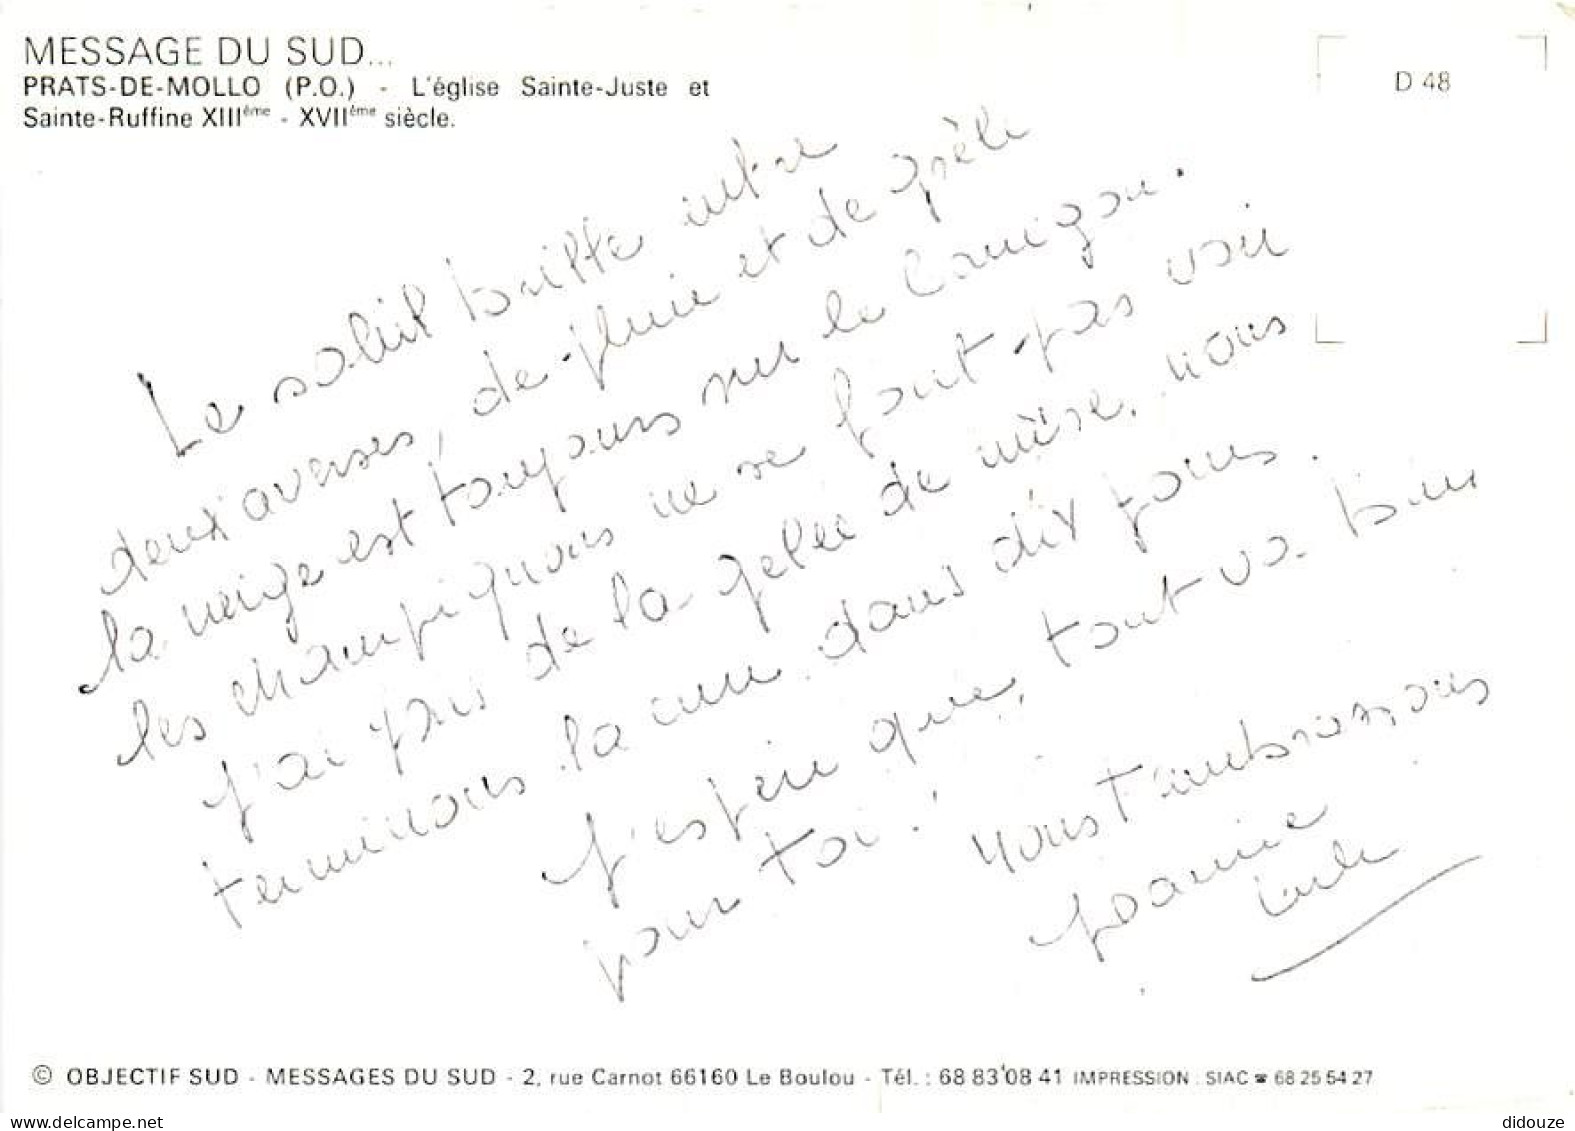 MESSAGE DU SUD...
PRATS-DE-MOLLO (P.O.) - L'église Sainte-Juste et
Sainte-Ruffine XIIIème - XVIIème siècle.
D 48
Le soleil brille entre
deux averses, de pluie et de grêle
la neige est toujours sur le Canigou.
les champignons ne se font pas voir
J'ai fais de la gelée de mûre. nous
terminons la cure dans dix jours.
J'espère que, tout va bien
pour toi !
nous t'embrassons
Joanine
© OBJECTIF SUD - MESSAGES DU SUD - 2, rue Carnot 66160 Le Boulou - Tél. : 68 83 08 41 IMPRESSION : SIAC ☎ 68 25 54 27
delcampe.net
didouze